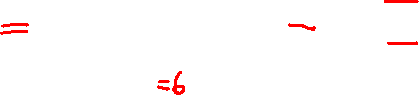 = ~
=6